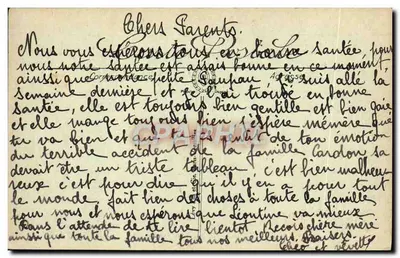 Chers Parents.
Nous vous espérons tous en bonne santée, pour
nous notre santée est assais bonne en ce moment,
ainsi que notre petite je suis allé la
semaine dernière et je l'ai trouvé en bonne
santée, elle est toujours bien gentille est bien gaie
et elle mange toujours bien. J'espère mémère que
tu va bien et que tu est de ton émotion
du terrible accident de la famille Cardon sa
devait être un triste tableau, c'est bien malheu
reux c'est pour dire qu'il y en a pour tout
le monde. fait bien des choses à toute la famille
pour nous et nous espérons que Léontine va mieux
Dans l'attende de te lire bientot Recois chère mère
ainsi que toute la famille tous nos meilleurs Baisers.
et